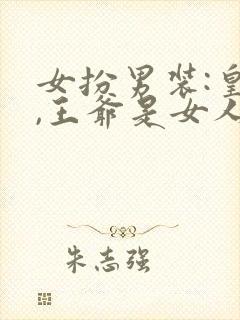 女扮男装:皇
,王爷是女人
朱志强